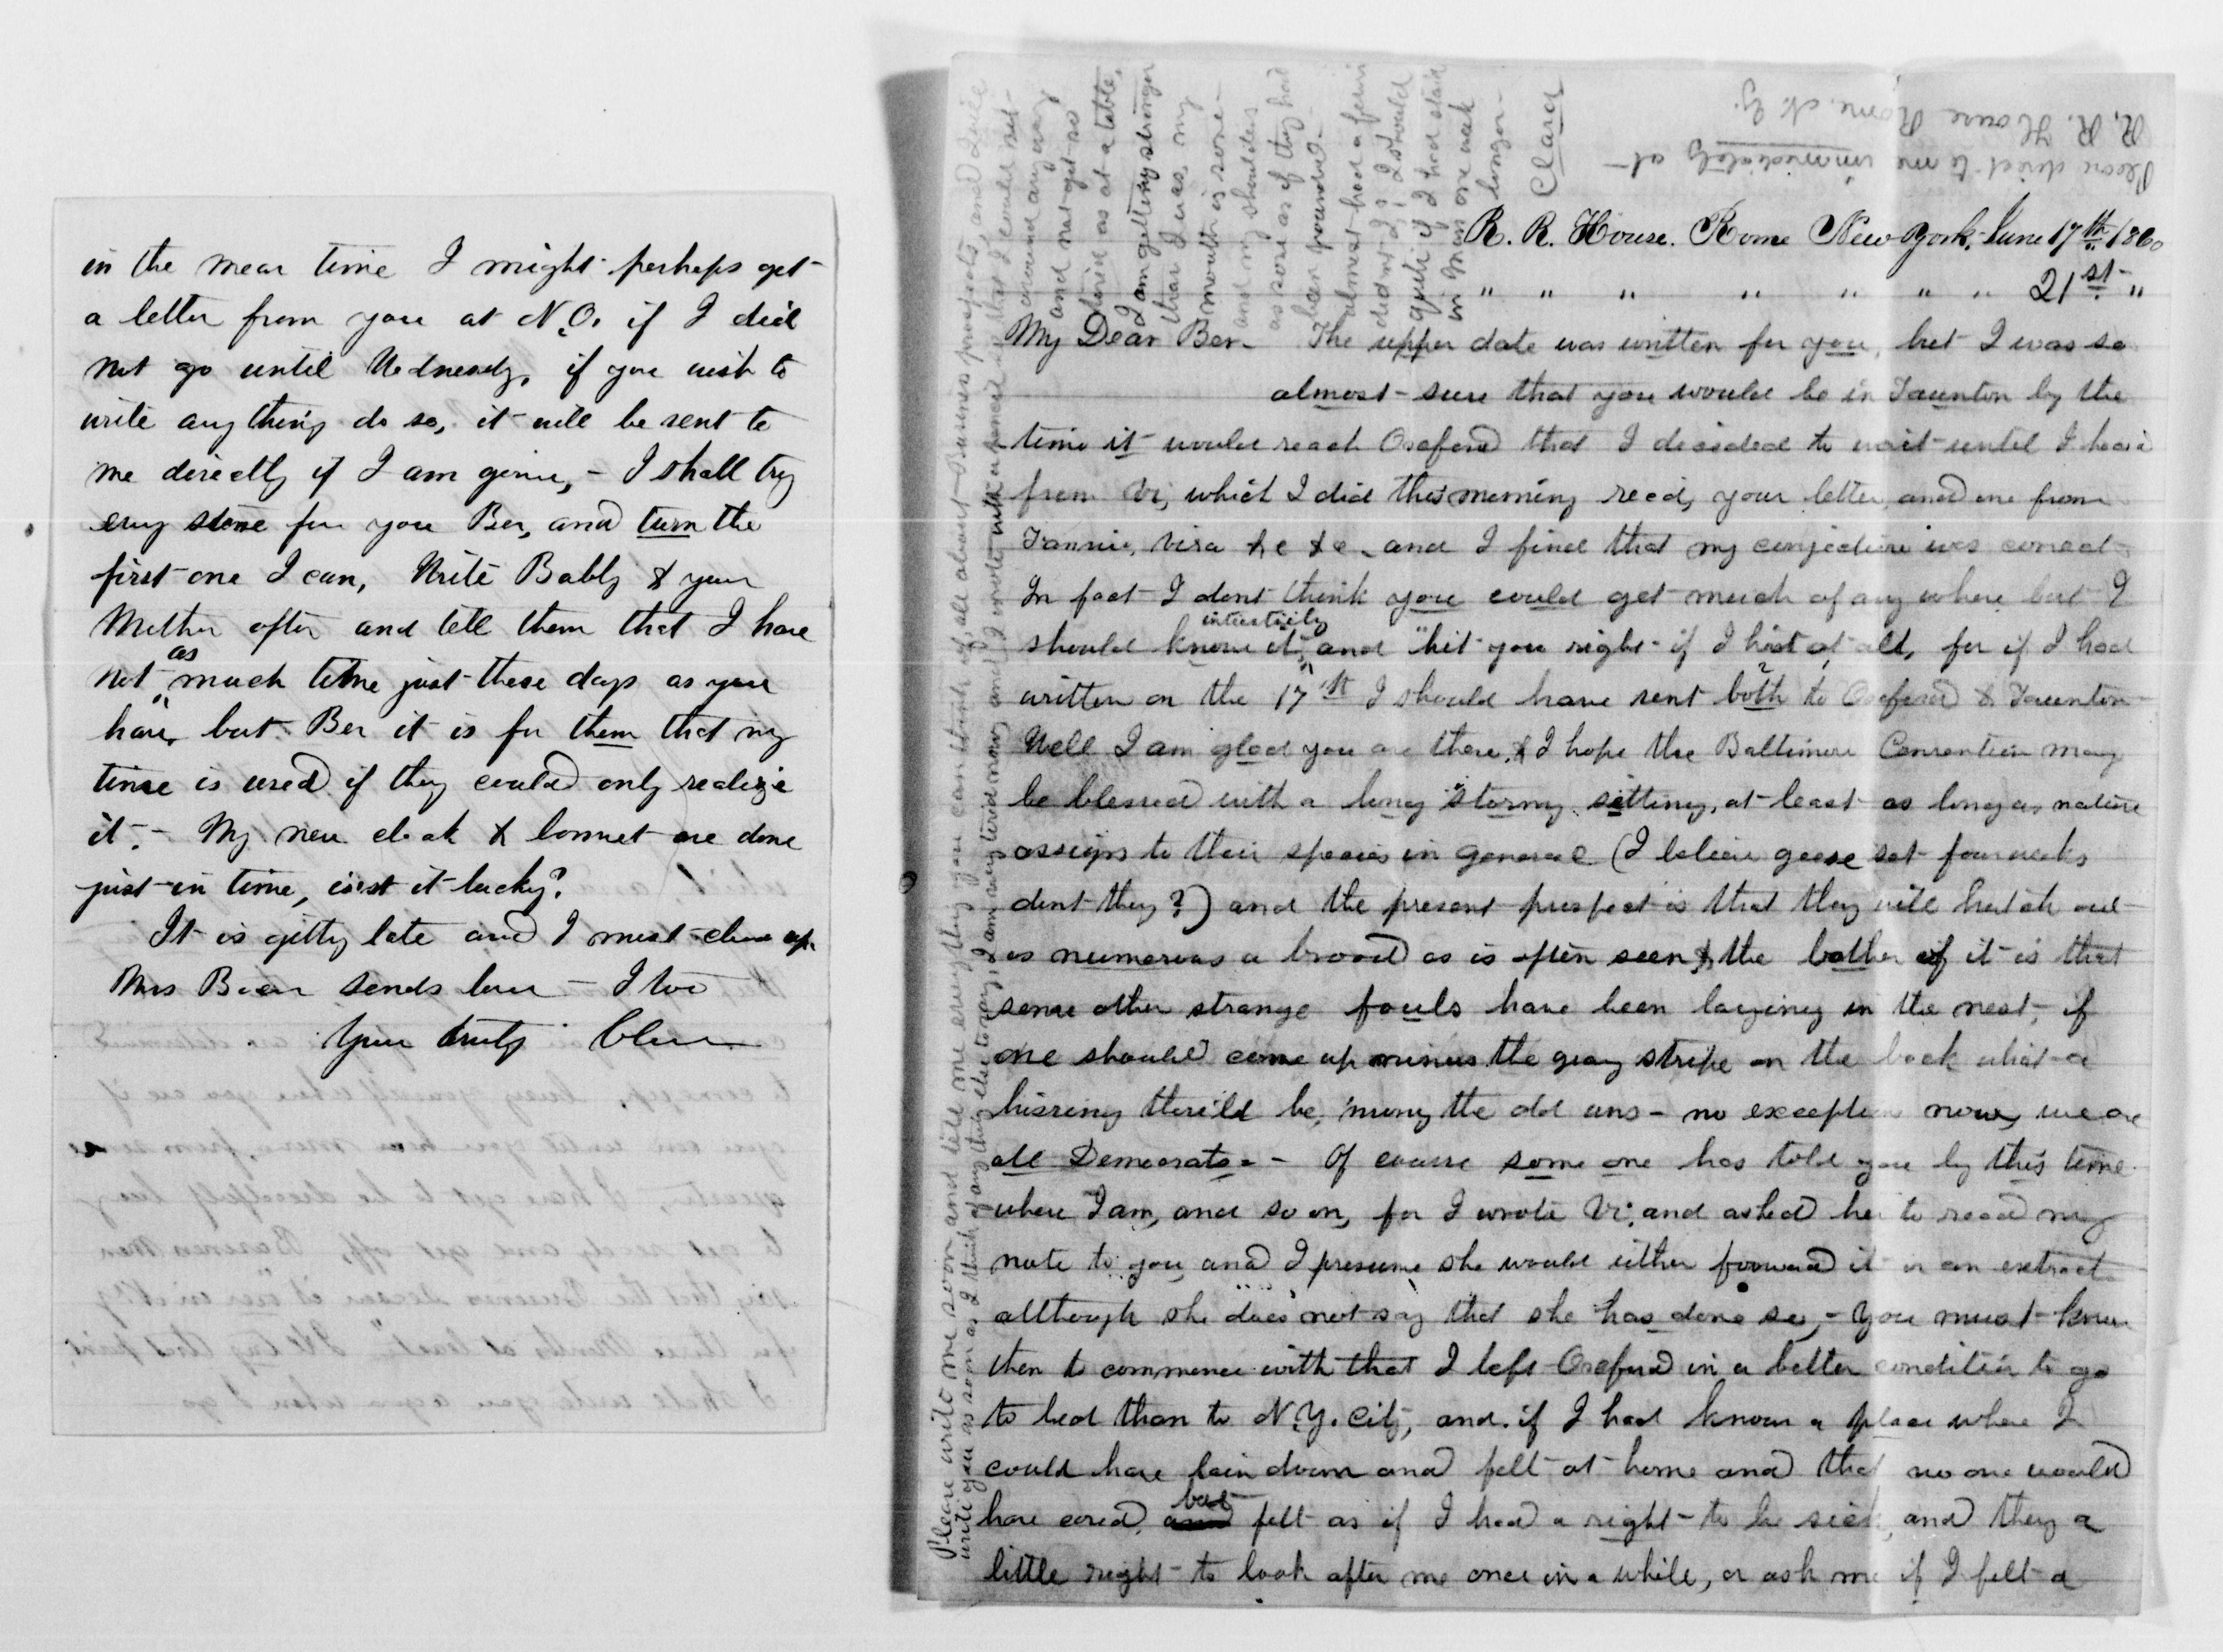 in the mean time I might perhaps get
a letter from you at N.O. if I did
not go until Wednesdy, if you wish to
write any thing do so, it will be sent to
me directly if I am gone, - I shall try
evry stone for you Ber, and turn the
first one I can, Write Bably & your
Mother often and tell them that I have
not as much time just these days as you
have, but Ber it is for them that my
time is used if they could only realize
it. - My new cloak & bonnet are done
just in time, isist it lucky?
It is gitty late and I must close up
Mrs sends love - I too
Your truly Clara
Please direct to me immediately at -
R. R. House Rome N. Y.
R. R. House. Rome New York, June 17th 1860
" " " " " " " 21st "
My Dear Ber - The upper date was written for you, but I was so
almost - sure that you would be in Taunton by the
time it would reach Oxford that I decided to wait until I heard
from Vi, which I did this morning recd, your letter and one from
Fannie, Vira &c &c and I find that my conjecture was correct
In fact I dont think you could get much of any where but I
should know it intuitively, and "hit" you right - if I hist at all, for if I had
written on the 17th I should have sent both to Oxford & Taunton
Well I am glad you are there, & I hope the Baltimore Convention may
be blessed with a long "stormy" sitting, at least as long as nature
assigns to their species in general (I believe geese set four weeks
dont they?) and the present prospect is that they will hatch out
as numerous a brood as is often seen, & the bother of it is that
some other strange fouls have been laying in the nest, if
one should come up minus the gray stripe on the back what a
hissing there'ld be, 'mung the old uns - no exceptions now, we are
all Democrats. - Of course some one has told you by this time
where I am, and so on, for I wrote Vi, and asked her to read my
note to you, and I presume she would either forward it or an extract
although she does not say that she has done so, - you must know
then to commence with that I left Oxford in a better condition to go
to bed than to N.Y. City, and if I had known a place where I
could have lain down and felt at home and that no one would
have cared, but felt as if I had a right - to be sick, and they a
little right - to look after me once in a while, or ask me if I felt a
Please write me soon and tell me every thing you can think of, all about Business prospects, and I will
write you as soon as I think of any thing else to say, I am very tired now, and I wrote with a
around any way
and not get so
tired as at a table,
I am getting stronger
than I was, my
mouth is sore -
and my shoulders
as sore as if they had
been pounded -
almost had a fever
didnt I? I should
quite if I had staid
in Miss one week
longer -
Clara